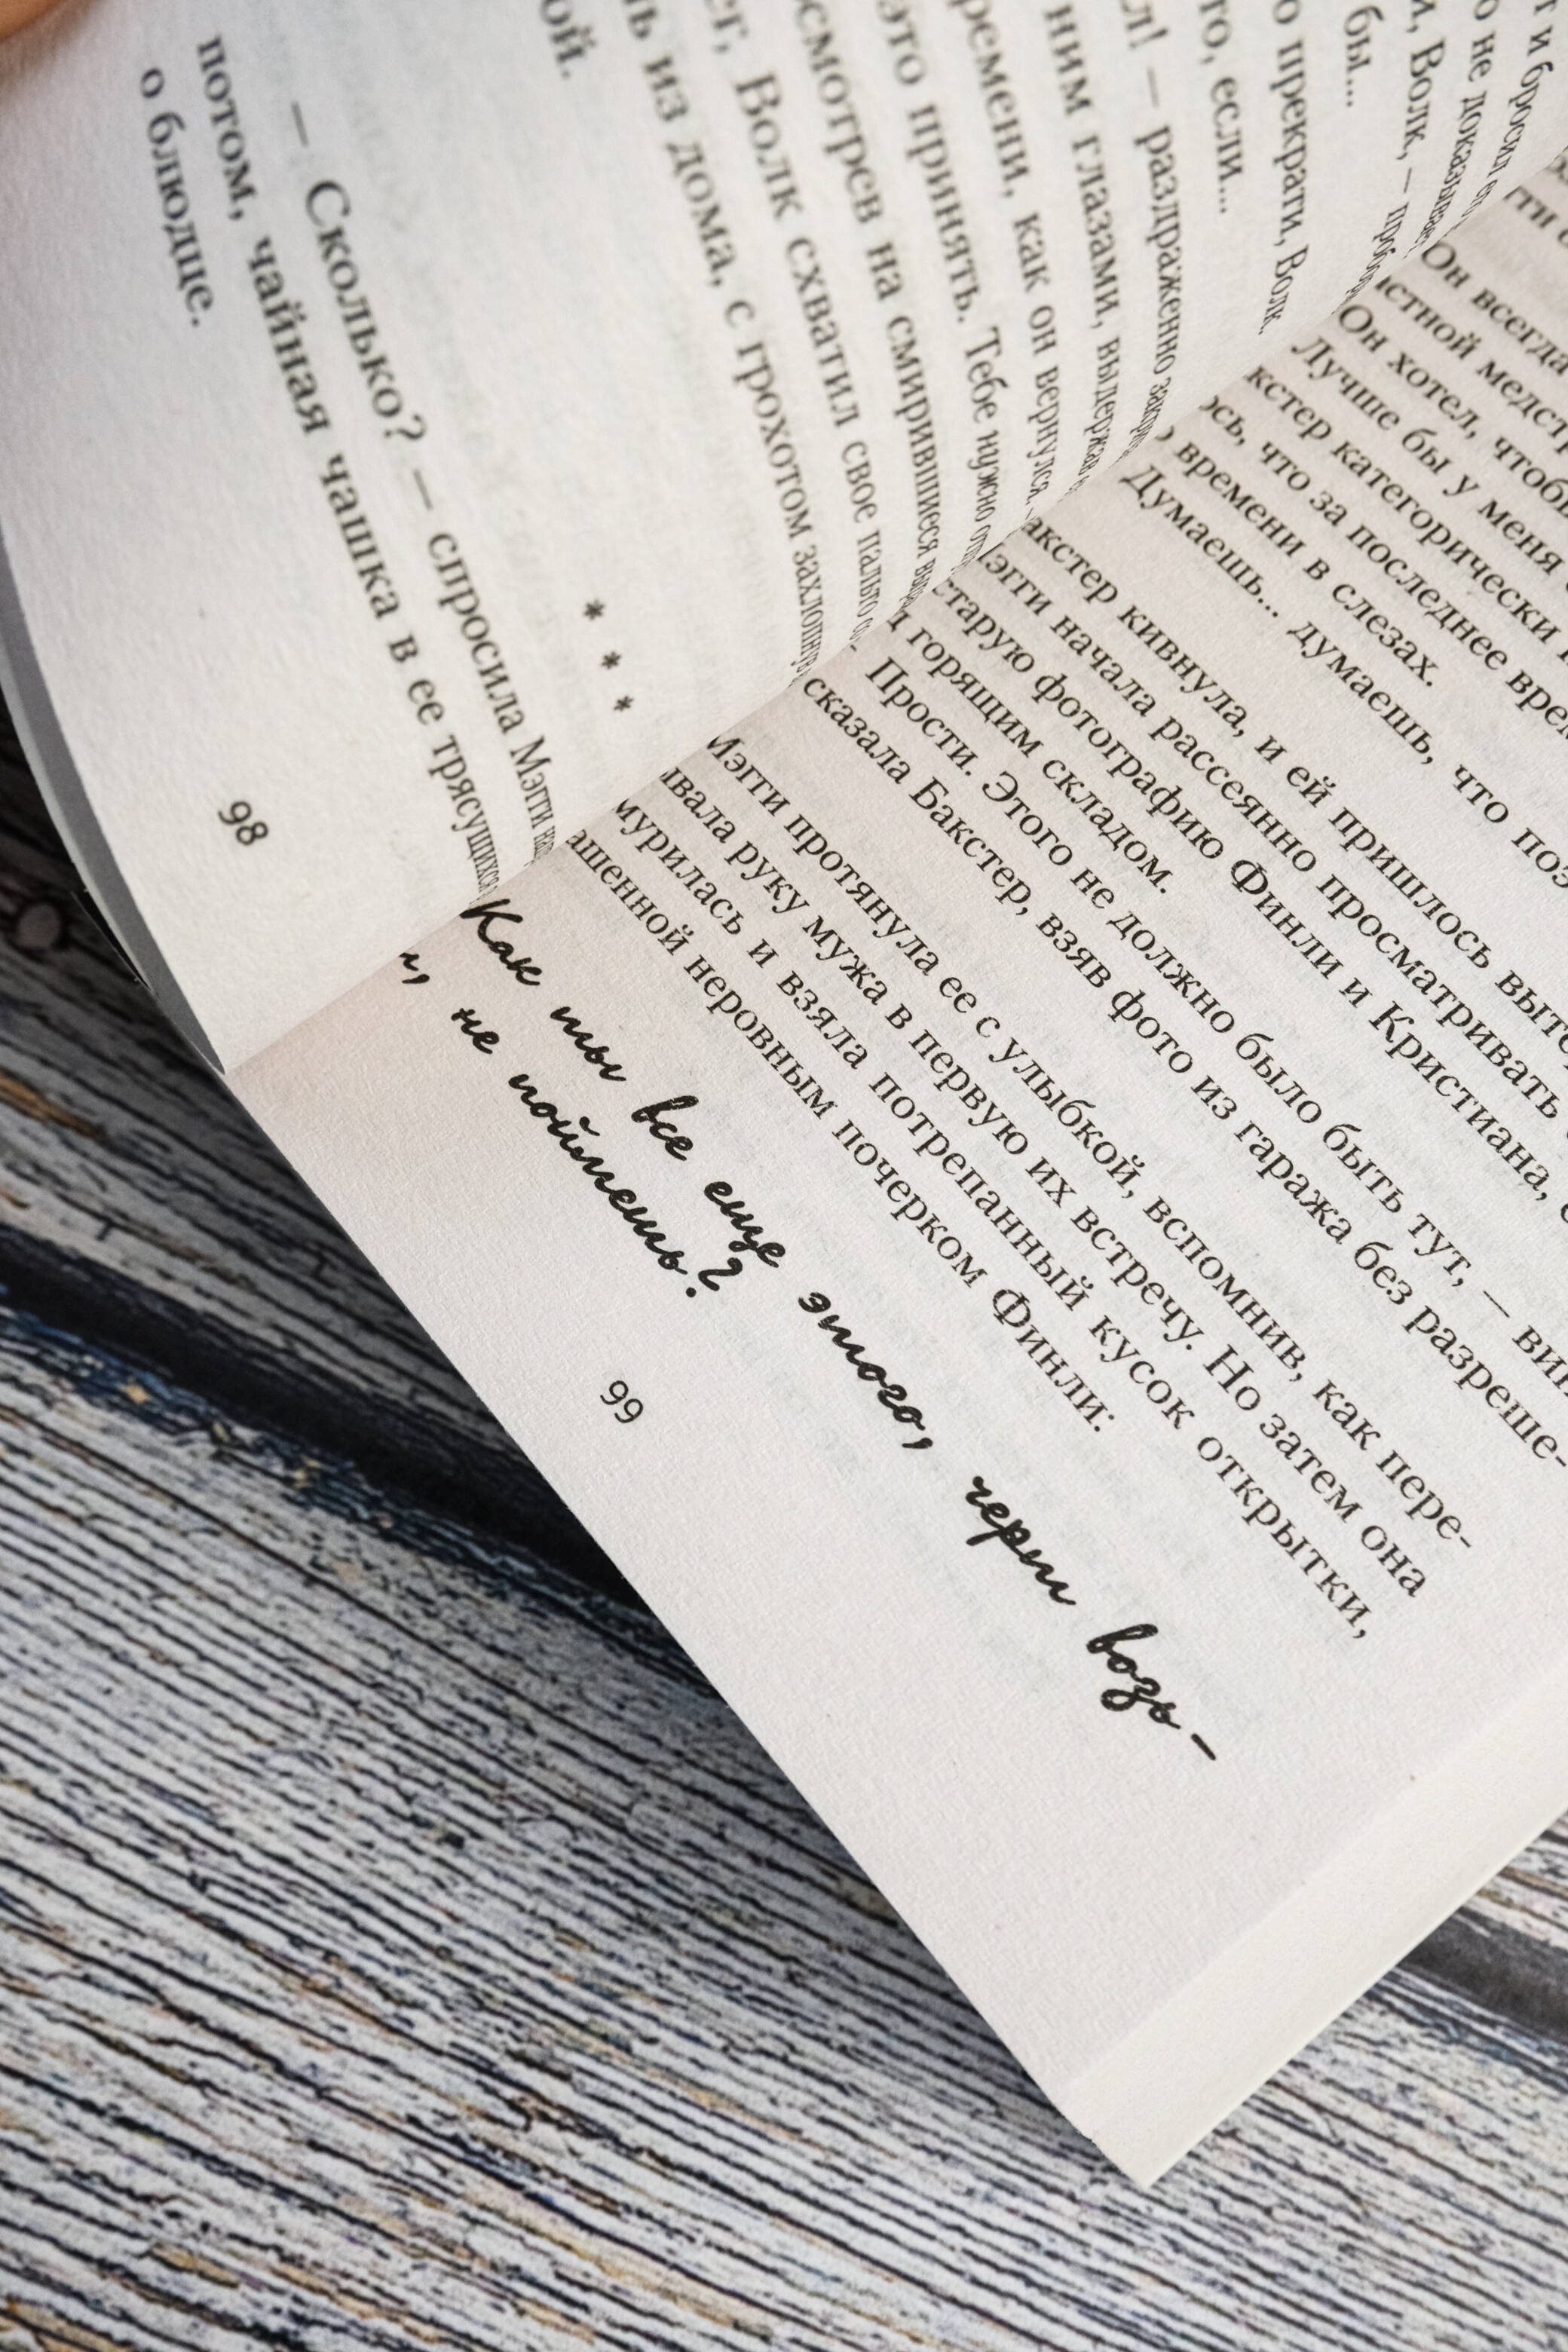 и бросил
не доказывает
Волк, —
бы...
прекрати, Волк.
то, если...
л! — раздраженно
ним глазами, выдержав
ремени, как он вернулся.
это принять. Тебе нужно
осмотрев на смирившиеся
ег, Волк схватил свое пальто
ь из дома, с грохотом захлопнув
ой.
* * *
— Сколько? — спросила Мэгги
потом, чайная чашка в ее трясущихся
о блюдце.
98
Он всегда
астной медст
Он хотел, чтобы
Лучше бы у меня
кстер категорически
ось, что за последнее врем
времени в слезах.
Думаешь... думаешь, что поз
акстер кивнула, и ей пришлось выте
эгги начала рассеянно просматривать
старую фотографию Финли и Кристиана,
горящим складом.
- Прости. Этого не должно было быть тут, — вин
сказала Бакстер, взяв фото из гаража без разреше-
Мэгги протянула ее с улыбкой, вспомнив, как пере-
ивала руку мужа в первую их встречу. Но затем она
мурилась и взяла потрепанный кусок открытки,
ашенной неровным почерком Финли:
Как ты все еще этого, черт возь-
и, не поймешь?
99